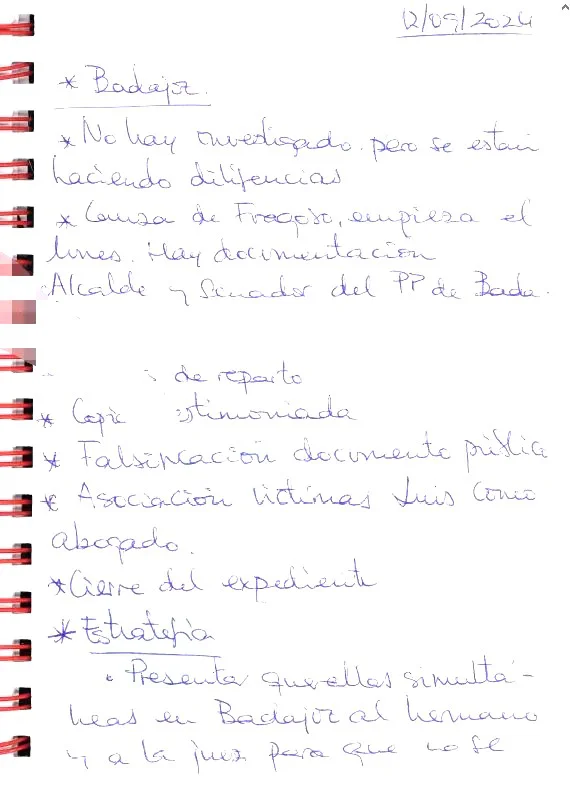 12/09/2024
* Badajoz.
* No hay investigado. pero se están
haciendo diligencias
* Causa de Fragoso, empieza el
lunes. Hay documentación
Alcalde y Senador del PP de Bada.
de reparto
* Copia stimoniada
* Falsificación documento público
* Asociación Víctimas Luis como
abogado.
* Cierre del expediente
* Estrategia
• Presentar querellas simultá-
neas en Badajoz al hermano
y a la juez para que no se